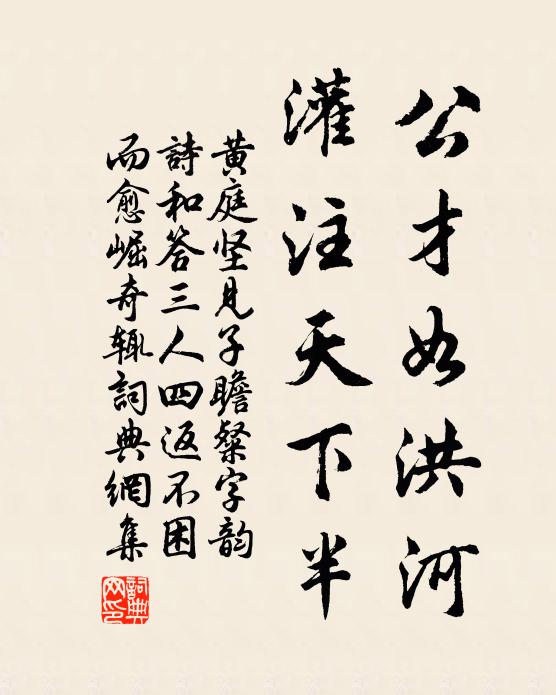 公才如洪河
灌注天下半
黄庭坚見子瞻粲字韵
詩和答三人四返不困
而愈崛奇輒詞典網集
詞典网印